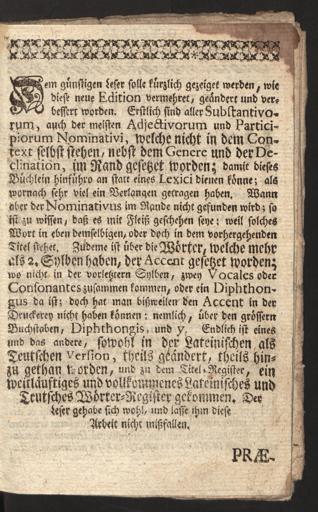 Dem günstigen Leser solle kürzlich gezeiget werden, wie
diese neue Edition vermehret, geändert und ver-
bessert worden. Erstlich sind aller Substantivo-
rum, auch der meisten Adjectivorum und Partici-
piorum Nominativi, welche nicht in dem Con-
text selbst stehen, nebst dem Genere und der De-
clination, im Rand gesetzet worden; damit dieses
Büchlein hinführo an statt eines Lexici dienen könne; als
wornach sehr viel ein Verlangen getragen haben. Wann
aber der Nominativus im Rande nicht gefunden wird; so
ist zu wissen, daß es mit Fleiß geschehen seye; weil solches
Wort in eben demselbigen, oder doch in dem vorhergehenden
Titel stehet. Zudeme ist über die Wörter, welche mehr
als 2. Sylben haben, der Accent gesetzet worden;
wo nicht in der vorletztern Sylben, zwey Vocales oder
Consonantes zusammen kommen, oder ein Diphthon-
gus da ist; doch hat man bißweilen den Accent in der
Druckerey nicht haben können: nemlich, über den grössern
Buchstaben, Diphthongis, und y. Endlich ist eines
und das andere, sowohl in der Lateinischen als
Teutschen Version, theils geändert, theils hin-
zu gethan worden, und zu dem Titel-Register, ein
weitläuftiges und vollkommenes Lateinisches und
Teutsches Wörter-Register gekommen. Der
Leser gehabe sich wohl, und lasse ihm diese
Arbeit nicht mißfallen.
PRÆ-